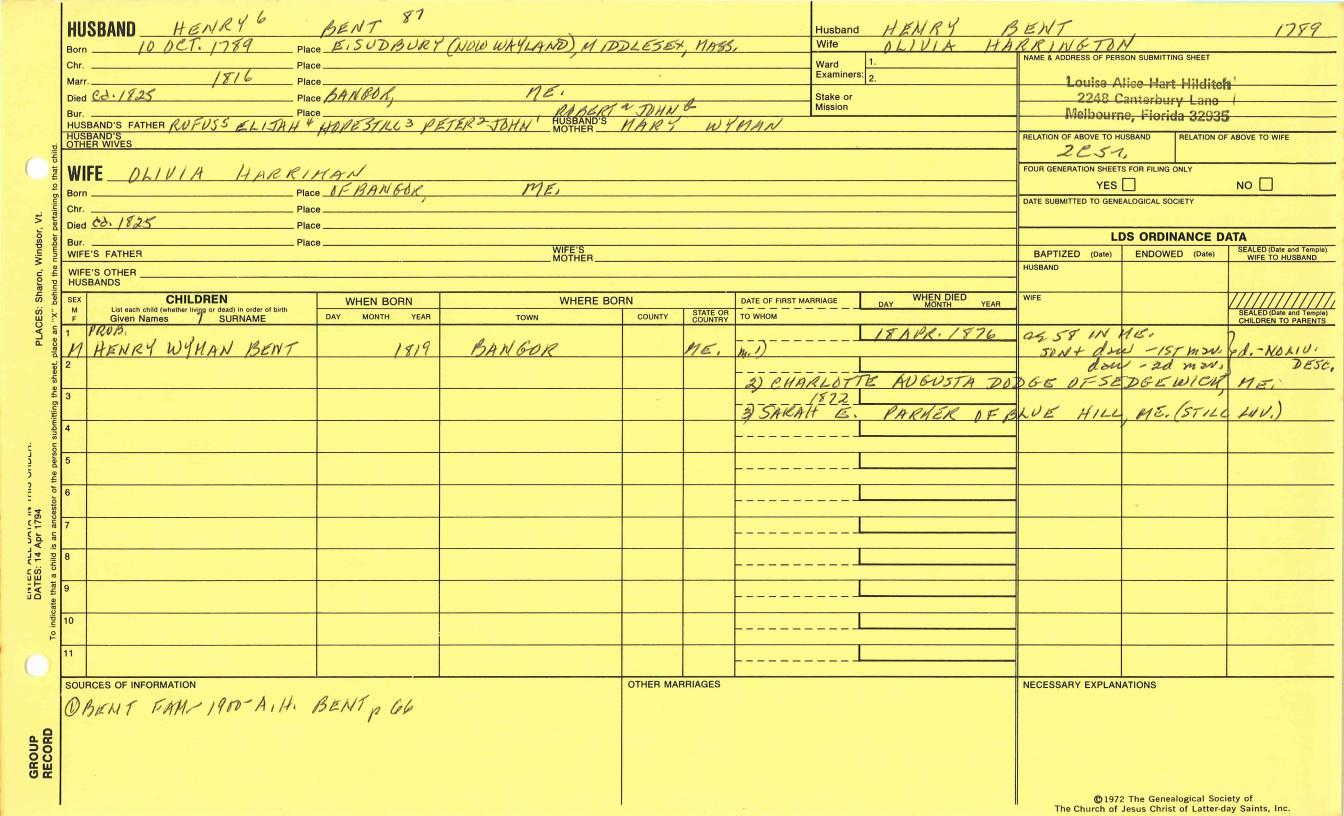 HUSBAND HENRY 6 BENT 87
Born 10 OCT. 1789 Place E. SUDBURY (NOW WAYLAND), MIDDLESEX, MASS.
Chr. Place
Marr. 1816 Place
Died Ca. 1825 Place BANGOR, ME.
Bur. Place ROBERT a JOHN
HUSBAND'S FATHER RUFUS 5 ELIJAH 4 HOPESTILL 3 PETER 2 JOHN 1 HUSBAND'S MOTHER MARY WYMAN
HUSBAND'S OTHER WIVES
WIFE OLIVIA HARRIMAN
Born Place OF BANGOR, ME.
Chr. Place
Died Ca. 1825 Place
Bur. Place
WIFE'S FATHER WIFE'S MOTHER
WIFE'S OTHER HUSBANDS
Husband HENRY BENT 1789
Wife OLIVIA HARRINGTON
Ward Examiners: 1.
2.
Stake or Mission
NAME & ADDRESS OF PERSON SUBMITTING SHEET
Louise Alice Hart Hilditch
2248 Canterbury Lane
Melbourne, Florida 32935
RELATION OF ABOVE TO HUSBAND RELATION OF ABOVE TO WIFE
2C5r.
FOUR GENERATION SHEETS FOR FILING ONLY
YES NO
DATE SUBMITTED TO GENEALOGICAL SOCIETY
LDS ORDINANCE DATA
BAPTIZED (Date) ENDOWED (Date) SEALED (Date and Temple) WIFE TO HUSBAND
HUSBAND
WIFE
SEALED (Date and Temple) CHILDREN TO PARENTS
SEX M F CHILDREN WHEN BORN WHERE BORN DATE OF FIRST MARRIAGE WHEN DIED
List each child (whether living or dead) in order of birth
Given Names SURNAME DAY MONTH YEAR TOWN COUNTY STATE OR COUNTRY TO WHOM DAY MONTH YEAR
1 PROB. 18 APR. 1876 ag 58 IN ME.
M HENRY WYMAN BENT 1819 BANGOR ME. m. 1) son + dau - 1st mar. } d. - NO LIV.
2 dau - 2d mar. DESC.
2) CHARLOTTE AUGUSTA DODGE OF SEDGEWICK, ME.
3 1872
3) SARAH E. PARKER OF BLUE HILL, ME. (STILL LIV.)
4
5
6
7
8
9
10
11
SOURCES OF INFORMATION OTHER MARRIAGES NECESSARY EXPLANATIONS
① BENT FAM - 1900 - A.H. BENT p 66
©1972 The Genealogical Society of
The Church of Jesus Christ of Latter-day Saints, Inc.
PLACES: Sharon, Windsor, Vt.
ENTER ALL DATA IN THIS ORDER:
DATES: 14 Apr 1794
To indicate that a child is an ancestor of the person submitting the sheet, place an "X" behind the number pertaining to that child.
GROUP RECORD